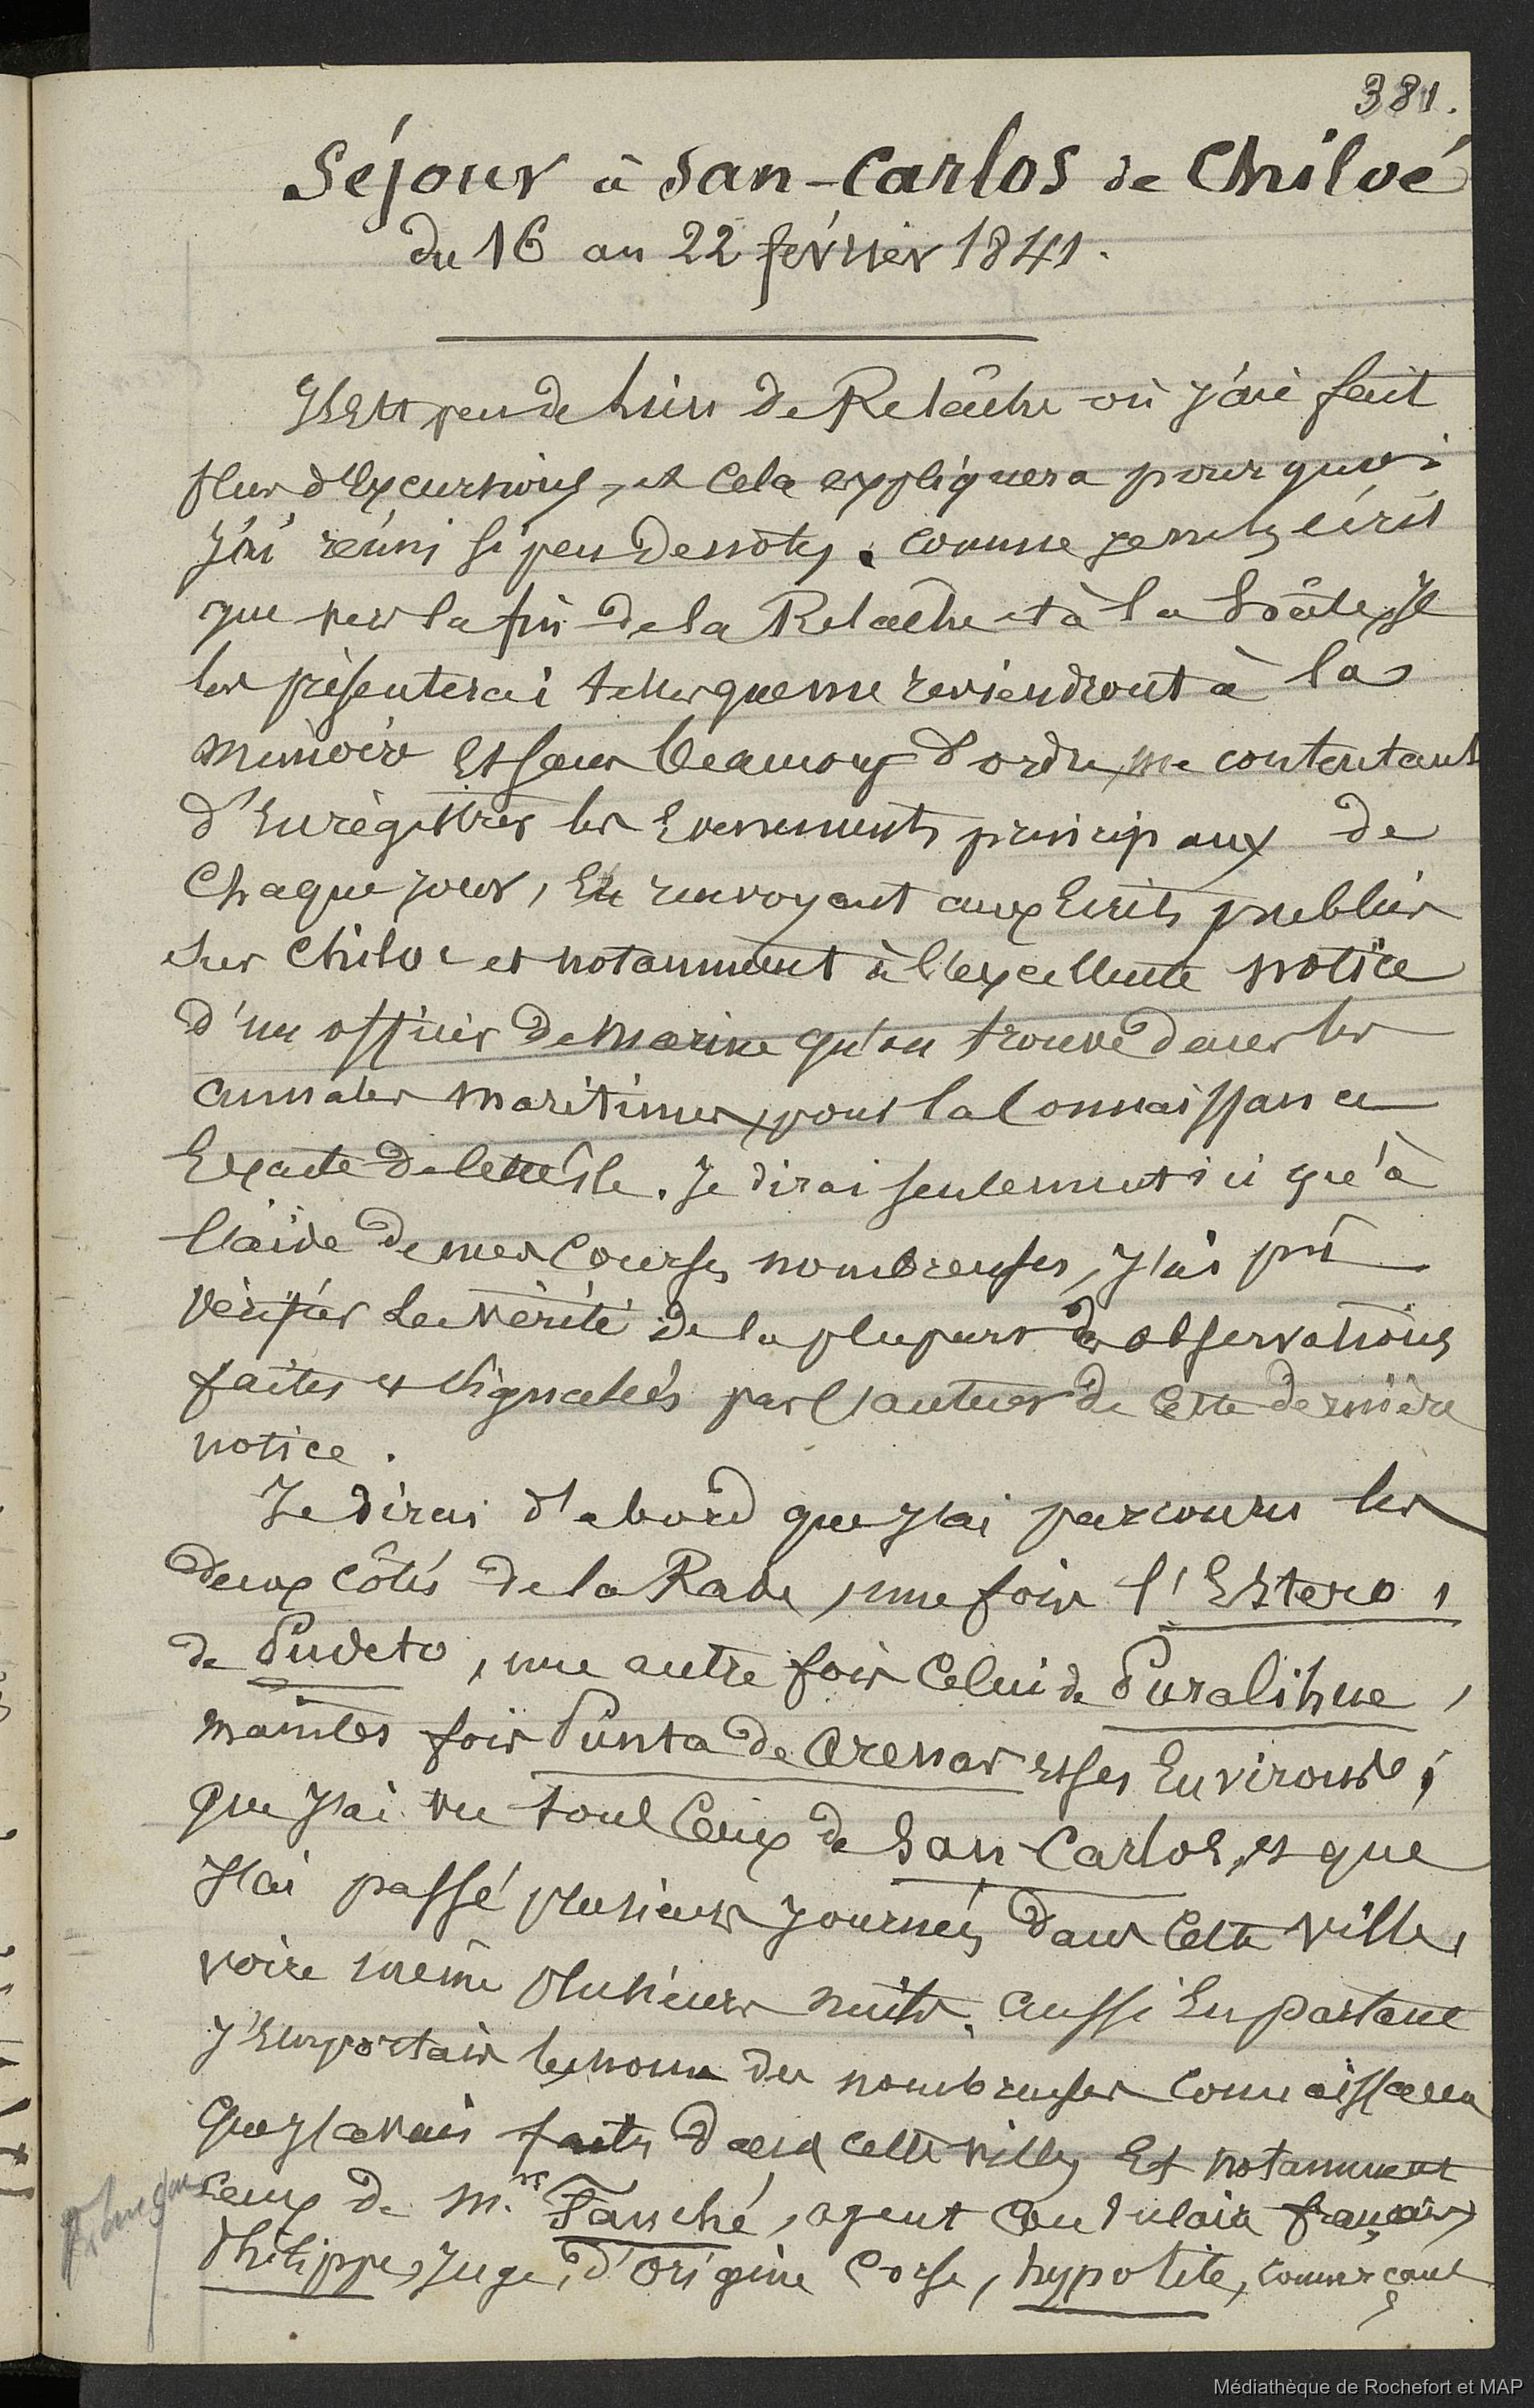 381.
Séjour à San-Carlos de Chiloé
du 16 au 22 février 1841.
Il est peu de lieu de Relâche où j'aie fait
plus d'Excursions, et cela expliquera pourquoi
j'ai réuni si peu de notes. Comme je n'ai écrit
que vers la fin de la Relâche et à la hâte, je
les présenterai telles que me reviendront à la
mémoire et sans beaucoup d'ordre, me contentant
d'Enrégistrer les Evenements principaux de
Chaque jour, En renvoyant aux Ecrits publiés
sur Chiloe et notamment à l'excellente notice
d'un officier de Marine qu'on trouve dans les
annales maritimes, pour la Connaissance
Exacte de cette île. Je dirai seulement ici qu'à
l'aide de mes Courses nombreuses, j'ai pû
vérifier la vérité de la plupart des observations
faites et signalées par l'auteur de cette dernière
notice.
Je dirai d'abord que j'ai parcouru les
deux côtés de la Rade, une fois l'Estero,
de Pudeto, une autre fois Celui de Puralihue,
maintes fois Punta de Arenas et ses Environs;
que j'ai vu tous Ceux de San-Carlos, et que
J'ai passé plusieurs journées dans Cette ville,
voire même plusieurs nuits. aussi En partant
J'Emportais les noms des nombreuses Connaissances
que j'avais faites dans cette ville, Et notamment
Ceux de M.rs Fauché, agent Consulaire français,
Philippe, Juge, d'origine Corse, hypolite, commerçant
Médiathèque de Rochefort et MAP